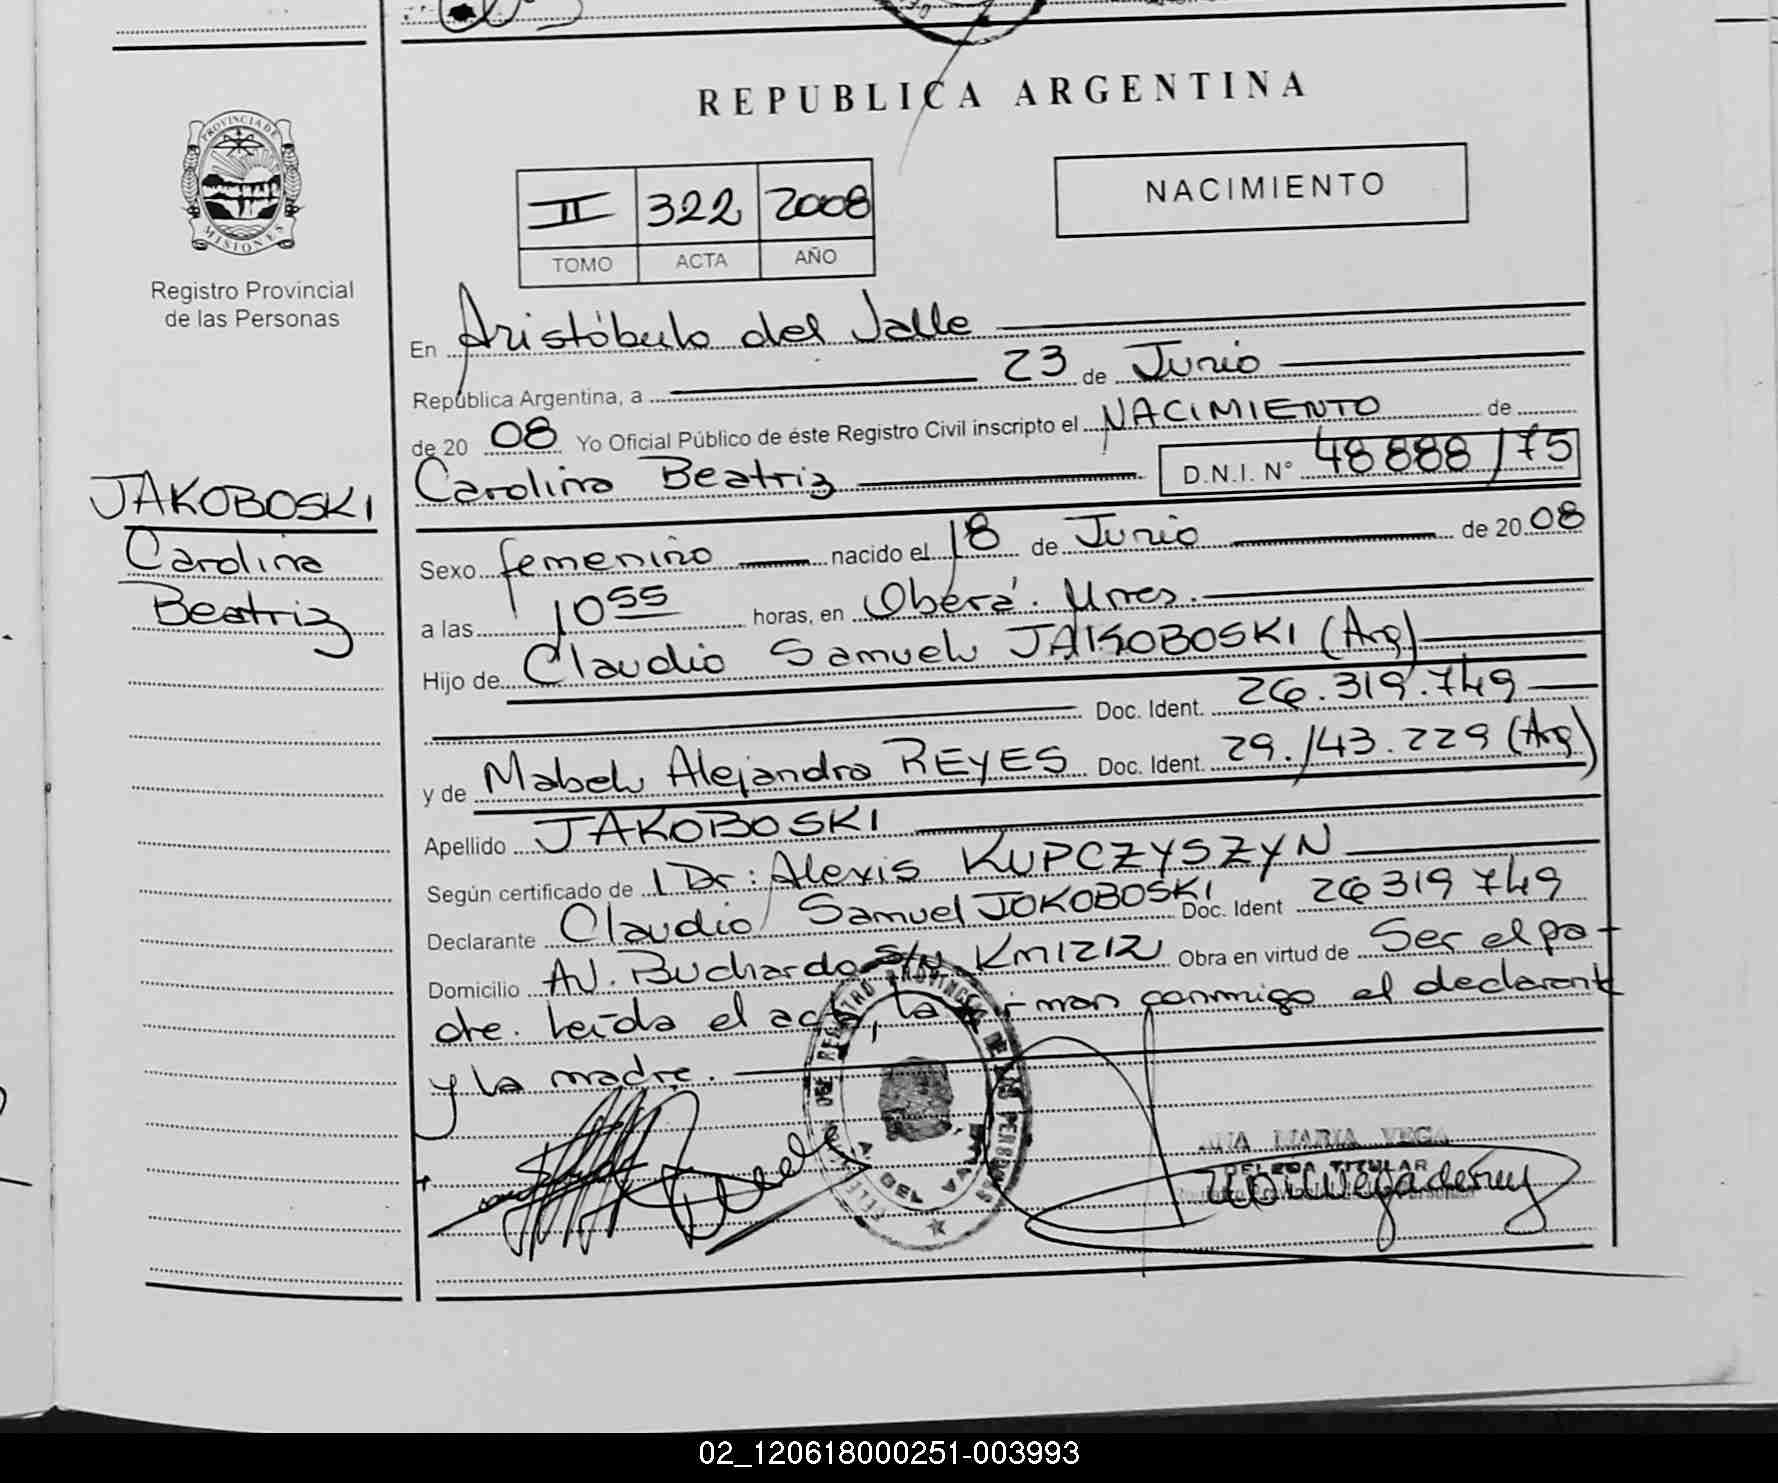 REPUBLICA ARGENTINA
PROVINCIA DE
MISIONES
Registro Provincial
de las Personas
II 322 2008
TOMO ACTA AÑO
NACIMIENTO
JAKOBOSKI
Carolina
Beatriz
En Aristóbulo del Valle
República Argentina, a 23 de Junio
de 20 08 Yo Oficial Público de éste Registro Civil inscripto el NACIMIENTO de
Carolina Beatriz D.N.I. N° 48888175
Sexo femenino nacido el 18 de Junio de 20 08
a las 10 55 horas, en Oberá. Mnes.
Hijo de Claudio Samuel JAKOBOSKI (Arg)
Doc. Ident. 26.319.749
y de Mabel Alejandra REYES Doc. Ident. 29.143.229 (Arg)
Apellido JAKOBOSKI
Según certificado de Dr: Alexis KUPCZYSZYN
Declarante Claudio Samuel JOKOBOSKI Doc. Ident 26319749
Domicilio AV. Buchardo s/n Km1212 Obra en virtud de Ser el pa-
dre. Leída el acta, la firman conmigo el declarante
y la madre.
ANA MARIA VEGA
DELEGA TITULAR
02_120618000251-003993